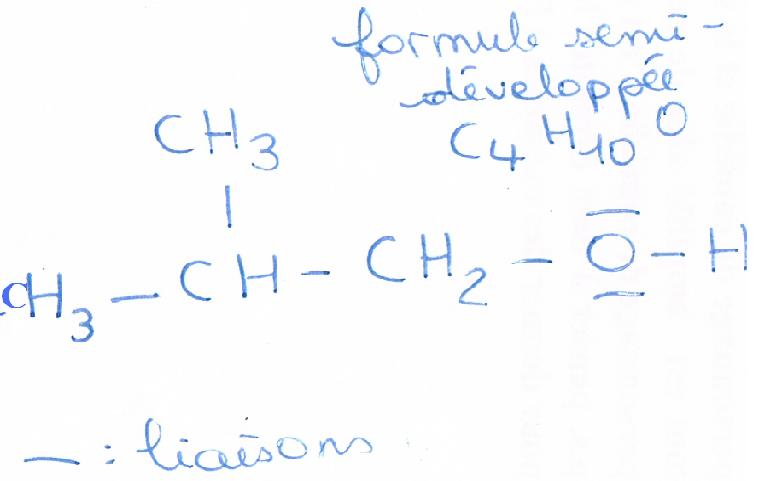 formule semi-
développée
C4H10O
CH3
|
CH3 – CH – CH2 – O – H
— : liaisons